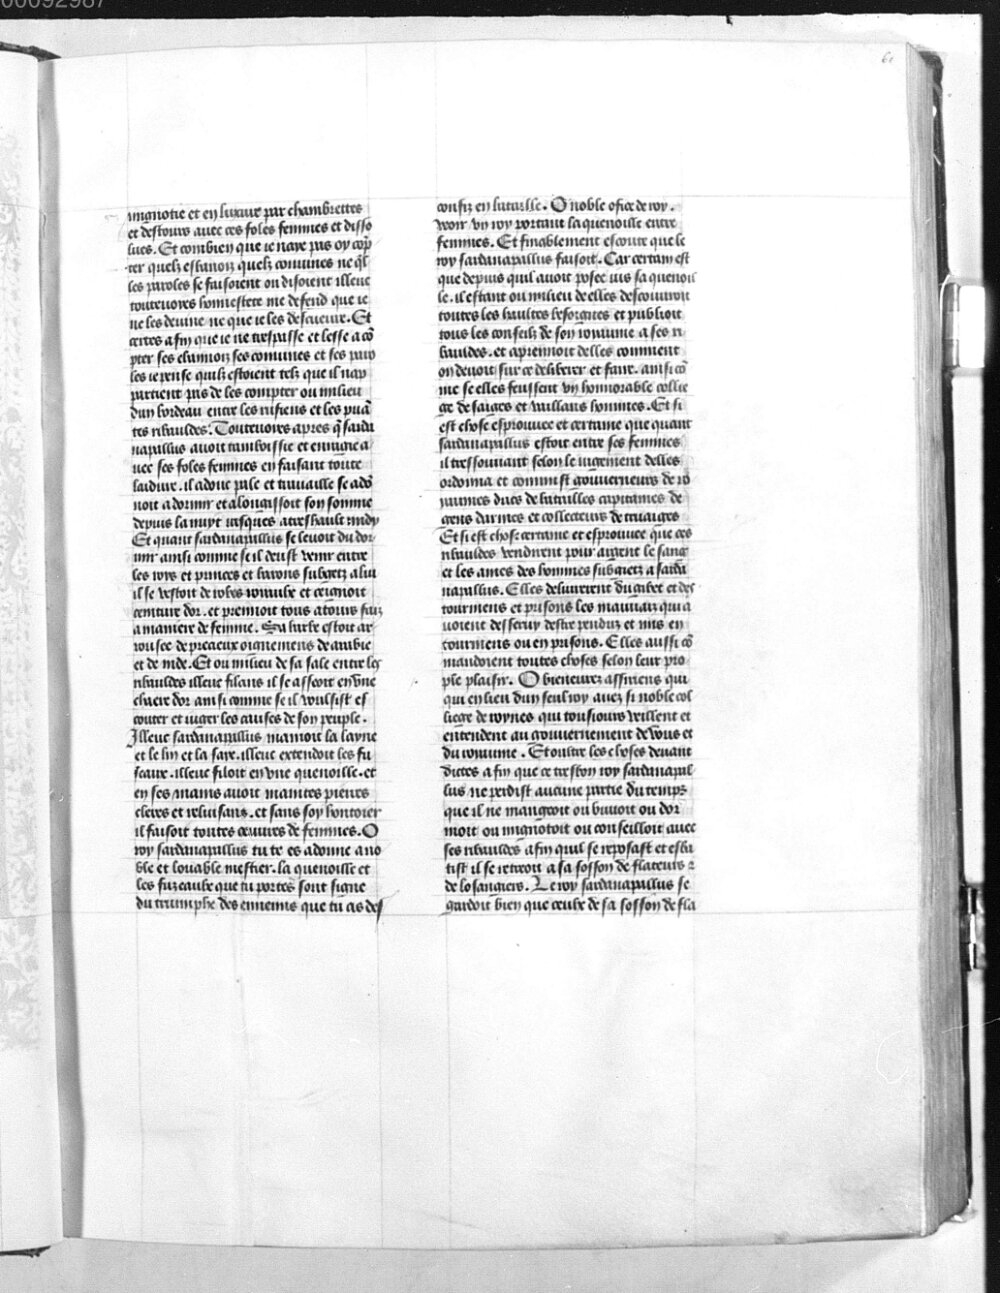 00092987
61
mignotie et en luxure par chambrettes
et destours auec ces foles femmes et disso
lues. Et combien que ie naye pas oy cop̄
ter quelz estanoiz quelz conuines ne q̄l
les paroles se faisoient ou disoient illeuc
touteuoies honnestete me defend que ie
ne les deuine ne que ie les desceuure. Et
certes afin que ie ne trespasse et lesse a cō
pter ses chanҫons ses conuines et ses paro
les ie pense quilz estoient telz que il nap
partient pas de les compter ou milieu
dun bordeau entre les rufiens et les puā
tes ribauldes. Touteuoies apres q̄ sarda
napallus auoit tamboissie et enragie a
uec ses foles femmes en faisant toute
laidure. il adonc pale et trauaille se adō
noit a dormir et alongissoit son somme
depuis la nuyt iusques a tres hault midy
Et quant sardanapallus se leuoit du dor
mir ainsi comme se il deust venir entre
les roys et princes et barons subgetz a lui
il se vestoit de robes royaulx et ceignoit
ceinture dor. et prennoit tous atours faiz
a maniere de femme. Sa barbe estoit ar
rousee de precieux oignemens darabie
et de inde. Et ou milieu de sa sale entre les
ribauldes illeuc filans il se asseoit en vne
chaere dor ainsi comme se il voulsist es
couter et iuger les causes de son peuple.
Illeuc sardanapallus manioit la layne
et le lin et la saye. illeuc extendoit les fu
seaux. illeuc filoit en vne quenoille. et
en ses mains auoit maintes pierres
cleres et reluisans. et sans soy hontoier
il faisoit toutes oeuures de femmes. O
roy sardanapallus tu te es adonne a no
ble et louable mestier. la quenoille et
les fuzeaulx que tu portes sont signe
du triumphe des ennemis que tu as des
confiz en bataille. O noble ofice de roy.
veoir vn roy portant la quenoille entre
femmes. Et finablement escoute que le
roy sardanapallus faisoit. Car certain est
que depuis quil auoit posee ius sa quenoil
le. il estant ou milieu de elles descouuroit
toutes les haultes besoignes et publioit
tous les conseilz de son royaume a ses ri
bauldes. et aprennoit delles comment
on deuoit sur ce deliberer et faire. ainsi cō
me se elles feussent vn honnorable collie
ge de saiges et vaillans hommes. Et si
est chose esprouuee et certaine que quant
sardanapallus estoit entre ses femmes
il tressouuant selon le iugement delles
ordonna et commist gouuerneurs de ro
yaumes ducs de batailles capitaines de
gens darmes et collecteurs de truaiges
Et si est chose certaine et esprouuee que ces
ribauldes vendirent pour argent le sang
et les ames des hommes subgietz a sarda
napallus. Elles deliurerent du gibet et des
tourmens et prisons les mauuaiz qui a
uoient desseruy destre penduz et mis en
tourmens ou en prisons. Elles aussi cō
mandoient toutes choses selon leur pro
pre plaisir. O bieneurez assiriens qui
qui en lieu dun seul roy auez si noble col
liege de roynes qui tousiours veillent et
entendent au gouuernement de vous et
du royaume. Et oultre les choses deuant
dictes afin que ce tresbon roy sardanapal
lus ne perdist aucune partie du temps
que il ne mangeoit ou buuoit ou dor
moit ou mignotoit ou conseilloit auec
ses ribauldes afin quil se reposast et esba
tist il se retraoit a sa fosson de flateurs ⁊
de losangiers. Le roy sardanapallus se
gardoit bien que ceulx de sa fosson de fla